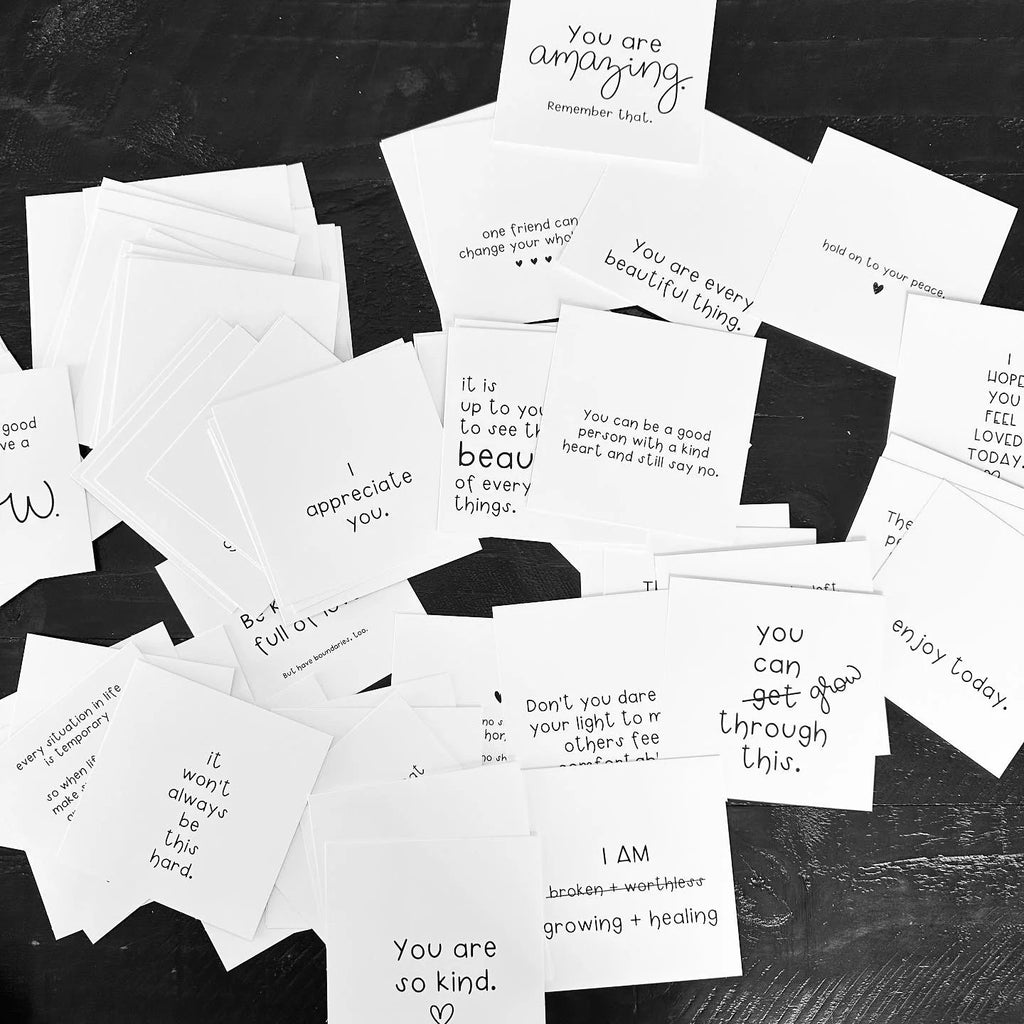 You are
amazing.
Remember that.
one friend can
change your
♥ ♥ ♥
You are every
beautiful thing.
hold on to your peace.
♥
I
HOPE
YOU
FEEL
LOVED
TODAY.
good
a
W.
I
appreciate
you.
it is
up to
to see
of every
things.
You can be a good
person with a kind
heart and still say no.
full of
But have boundaries, too.
enjoy today.
every situation in life
is temporary
so when
make
it
won't
always
be
this
hard.
Don't you dare
your light to
others
you
can
~~get~~ grow
through
this.
I AM
~~broken + worthless~~
growing + healing
You are
so kind.
♡